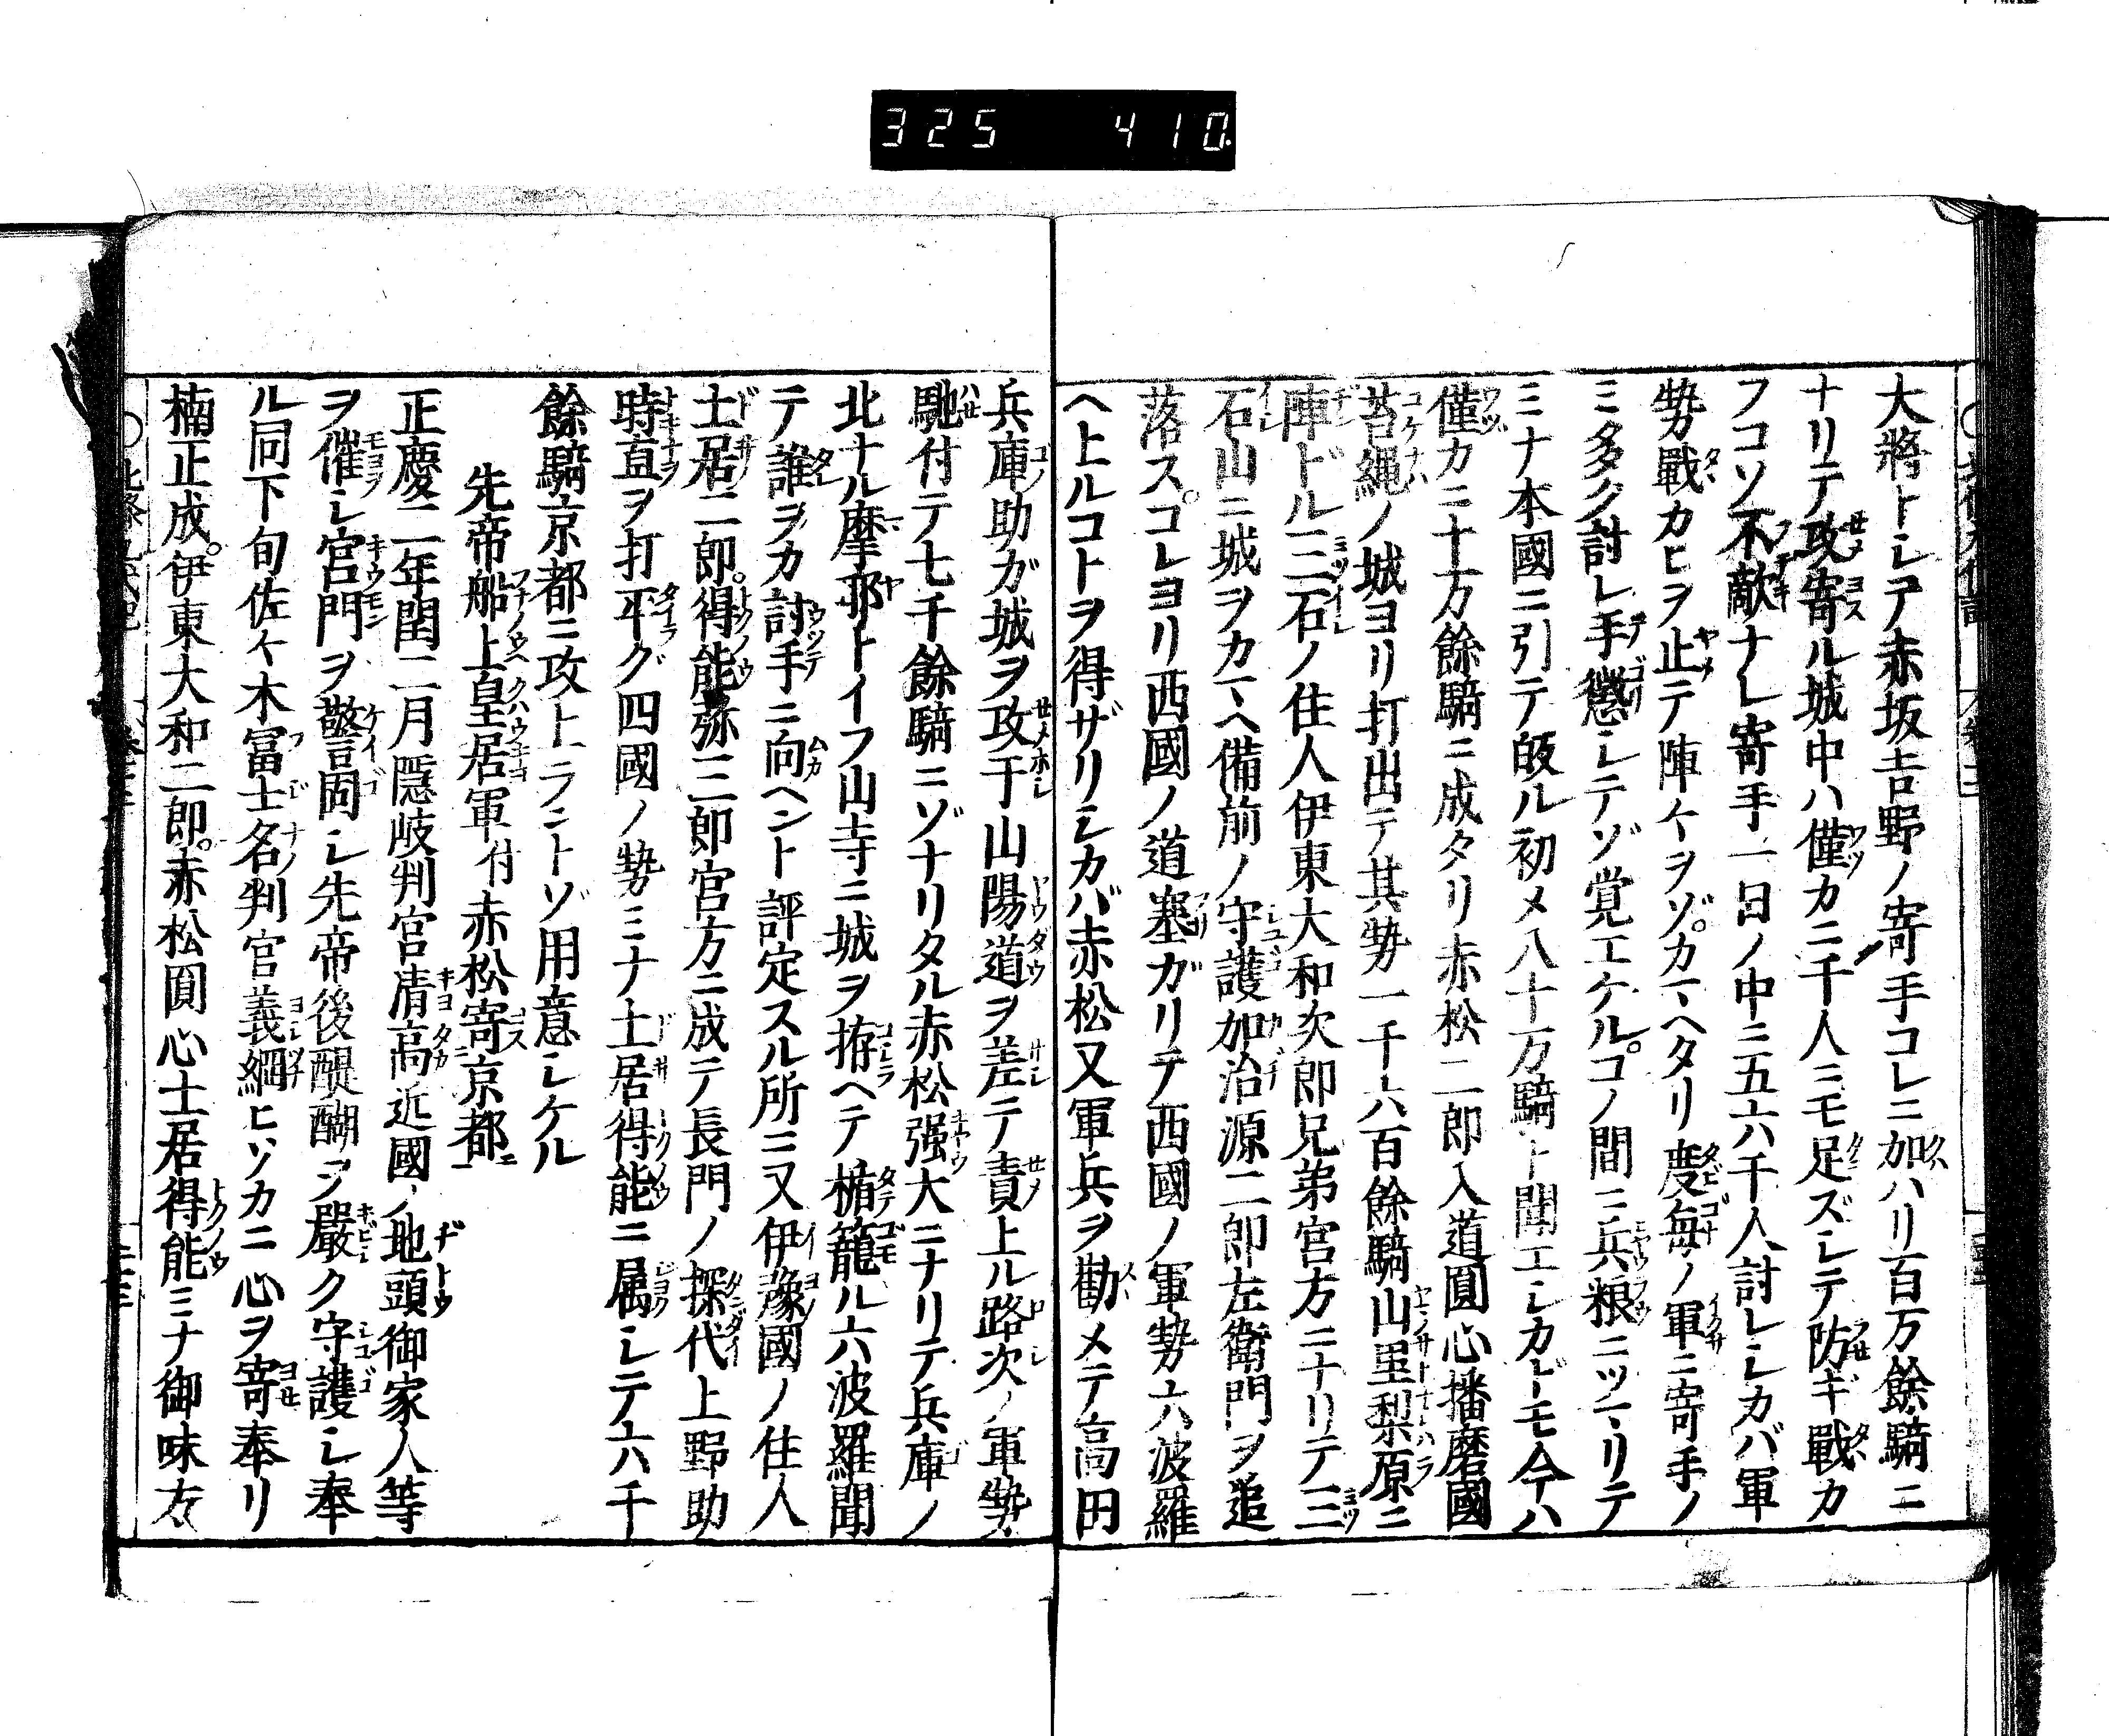 325 410
大將トシテ赤坂吉野ノ寄手コレニ加ハリ百万餘騎ニ
ナリテ攻寄ル城中ハ僅カニ千人ニモ足ズシテ防ギ戰カ
フコソ不敵ナレ寄手一日ノ中ニ五六千人討レシカバ軍
勢戰カヒヲ止テ陣ケヲゾカマヘタリ度毎ノ軍ニ寄手ノ
ミ多ク討レ手懲シテゾ覚エケルコノ間ニ兵粮ニツマリテ
ミナ本國ニ引テ皈ル初メ八十万騎ト聞エシカドモ今ハ
僅カニ十万餘騎ニ成タリ赤松二郎入道圓心播磨國
苔縄ノ城ヨリ打出テ其勢一千六百餘騎山里梨原ニ
陣ドル三石ノ住人伊東大和次郎兄弟宮方ニナリテ三
石山ニ城ヲカマヘ備前ノ守護加治源二郎左衛門ヲ追
落スコレヨリ西國ノ道塞ガリテ西國ノ軍勢六波羅
ヘ上ルコトヲ得ザリシカバ赤松又軍兵ヲ勸メテ高田
兵庫助ガ城ヲ攻干山陽道ヲ差テ責上ル路次ノ軍勢
馳付テ七千餘騎ニゾナリタル赤松强大ニナリテ兵庫ノ
北ナル摩耶トイフ山寺ニ城ヲ拵ヘテ楯籠ル六波羅聞
テ誰ヲカ討手ニ向ヘント評定スル所ニ又伊豫國ノ住人
土居二郎得能弥三郎宮方ニ成テ長門ノ探代上野助
時直ヲ打平グ四國ノ勢ミナ土居得能ニ属シテ六千
餘騎京都ニ攻上ラントゾ用意シケル
先帝船上皇居軍付赤松寄京都ニ
正慶二年閏二月隠岐判官清高近國ノ地頭御家人等
ヲ催シ宮門ヲ警固シ先帝後醍醐ヲ嚴ク守護シ奉
ル同下旬佐々木冨士名判官義綱ヒソカニ心ヲ寄奉リ
楠正成伊東大和二郎赤松圓心土居得能ミナ御味方